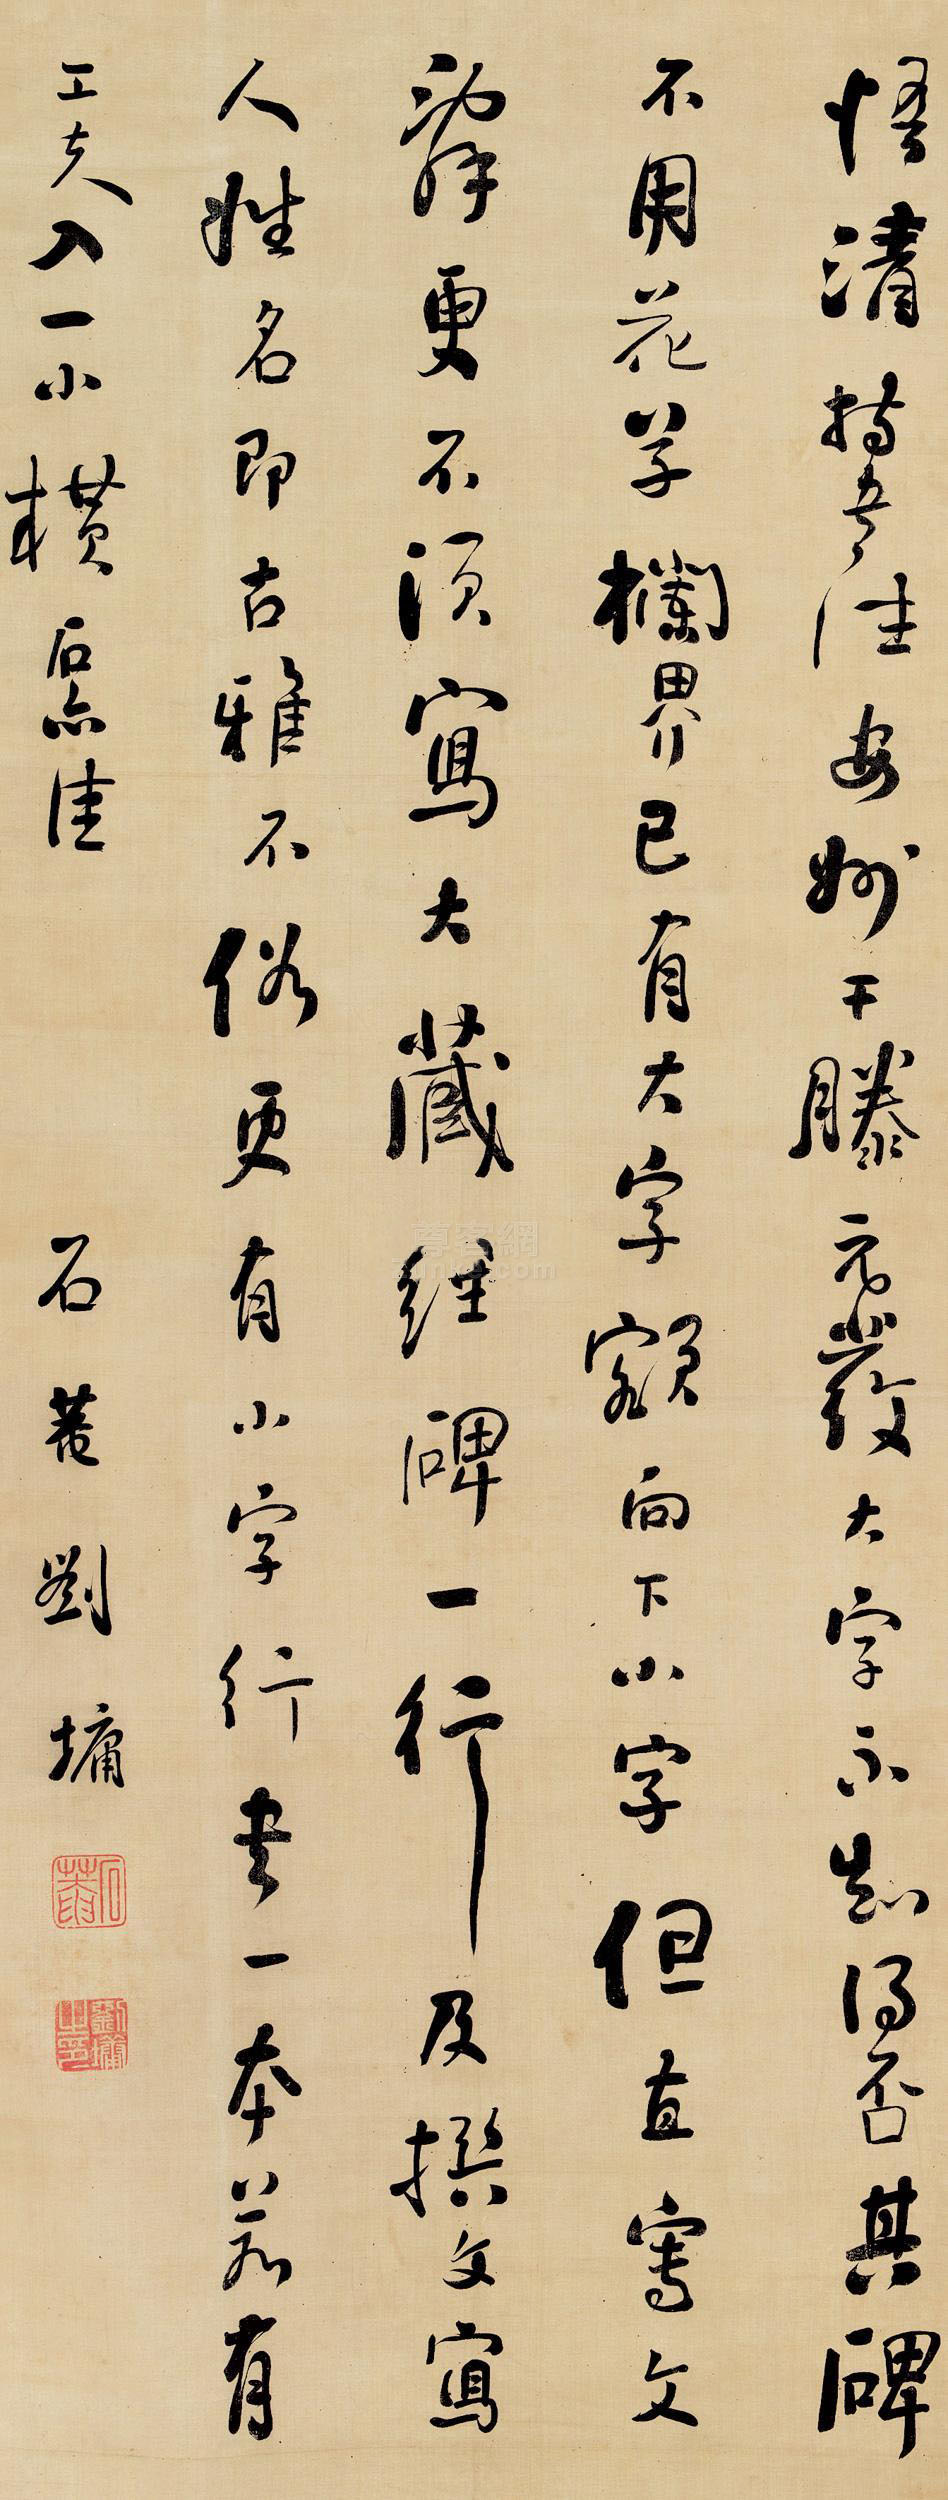 悟清持書往安州干滕元發大字不知得否其碑
不用花草欄界已有大字額向下小字但直寫文
辭更不須寫大藏經碑一行及撰文寫
人姓名即古雅不俗更有小字行書一本若有
工夫入一小橫石亦佳 石菴劉墉
石菴
劉墉之印